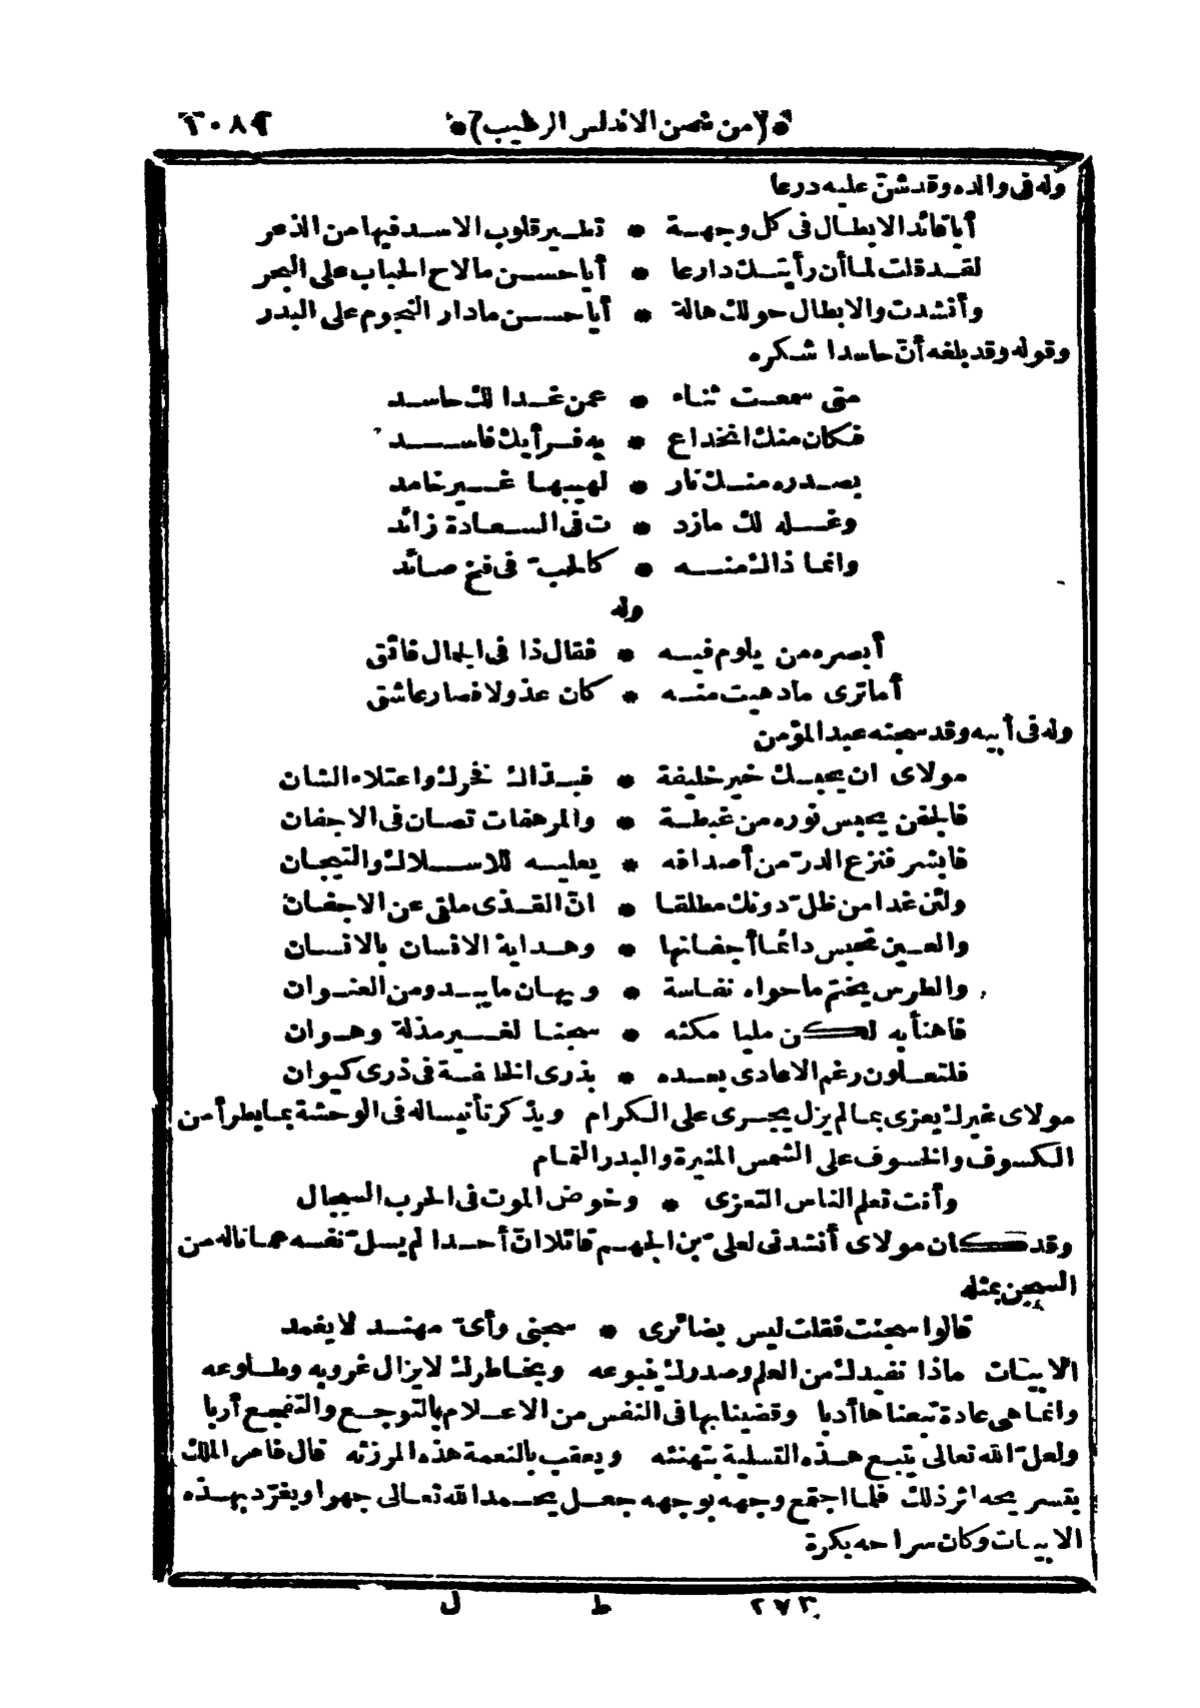 (من غصن الاندلس الرطيب) ١٠٨٩
وله فى والده وقد شنّ عليه درعا
أيا قائد الابطال فى كل وجهة * تطير قلوب الاسد فيها من الذعر
لقد قلت لما أن رأيتك دارعا * أيا حسن ما لاح الحباب على البحر
وأنشدت والابطال حولك هالة * أيا حسن مادار النجوم على البدر
وقوله وقد بلغه أنّ حاسدا شكره
متى سمعت ثناء * عمن غدا لك حاسد
فكان منك انخداع * به فرأيك فاسد
بصدره منك نار * لهيبها غير خامد
وغله لك مازد * ت فى السعادة زائد
وانما ذالك منه * كالحبّ فى فخ صائد
وله
أبصره من يلوم فيه * فقال ذا فى الجمال فائق
أما ترى مادهيت منه * كان عذولا فصار عاشق
وله فى أبيه وقد سجنه عبد المؤمن
مولاى ان يحبسك خير خليفة * فبذاك فخرك واعتلاء الشان
فالجفن يحبس نوره من غبطة * والمرهفات تصان فى الاجفان
فابشر فنزع الدرّ من أصدافه * يعليه للاسلاك والتيجان
ولئن غدا من ظلّ دونك مطلقا * انّ القذى ملقى عن الاجفان
والعين تحبس دائما أجفانها * وهداية الانسان بالانسان
والطرس يختم ما حواه نفاسة * ويهان ما يبدو من العنوان
فاهنأ به لكن مليا مكثه * سجنا لغير مذلة وهوان
فلتعلون رغم الاعادى بعده * بذرى الخلافة فى ذرى كيوان
مولاى غيرك يعزى بما لم يزل يجرى على الكرام ويذكر تأنيسا له فى الوحشة بما يطرأ من
الكسوف والخسوف على الشمس المنيرة والبدر التمام
وأنت تعلم الناس التعزى * وخوض الموت فى الحرب السجال
وقد كان مولاى أنشدنى لعلىّ بن الجهم قائلا انّ أحدا لم يسلّ نفسه عما ناله من
السجن بمثله
قالوا سجنت فقلت ليس بضائرى * سجنى وأىّ مهند لا يغمد
الابيات ماذا نفيدك من العلم وصدرك ينبوعه وبخاطرك لا يزال غروبه وطلوعه
وانما هى عادة تبعناها أدبا وقضينا بها فى النفس من الاعلام بالتوجع والتفجع أربا
ولعلّ الله تعالى يتبع هذه التسلية بتهنئه ويعقب بالنعمة هذه المرزئه قال فامر الملك
بتسريحه اثر ذلك فلما اجتمع وجهه بوجهه جعل يحمد الله تعالى جهرا ويغرّد بهذه
الابيات وكان سراحه بكرة
٢٧٣ ط ل